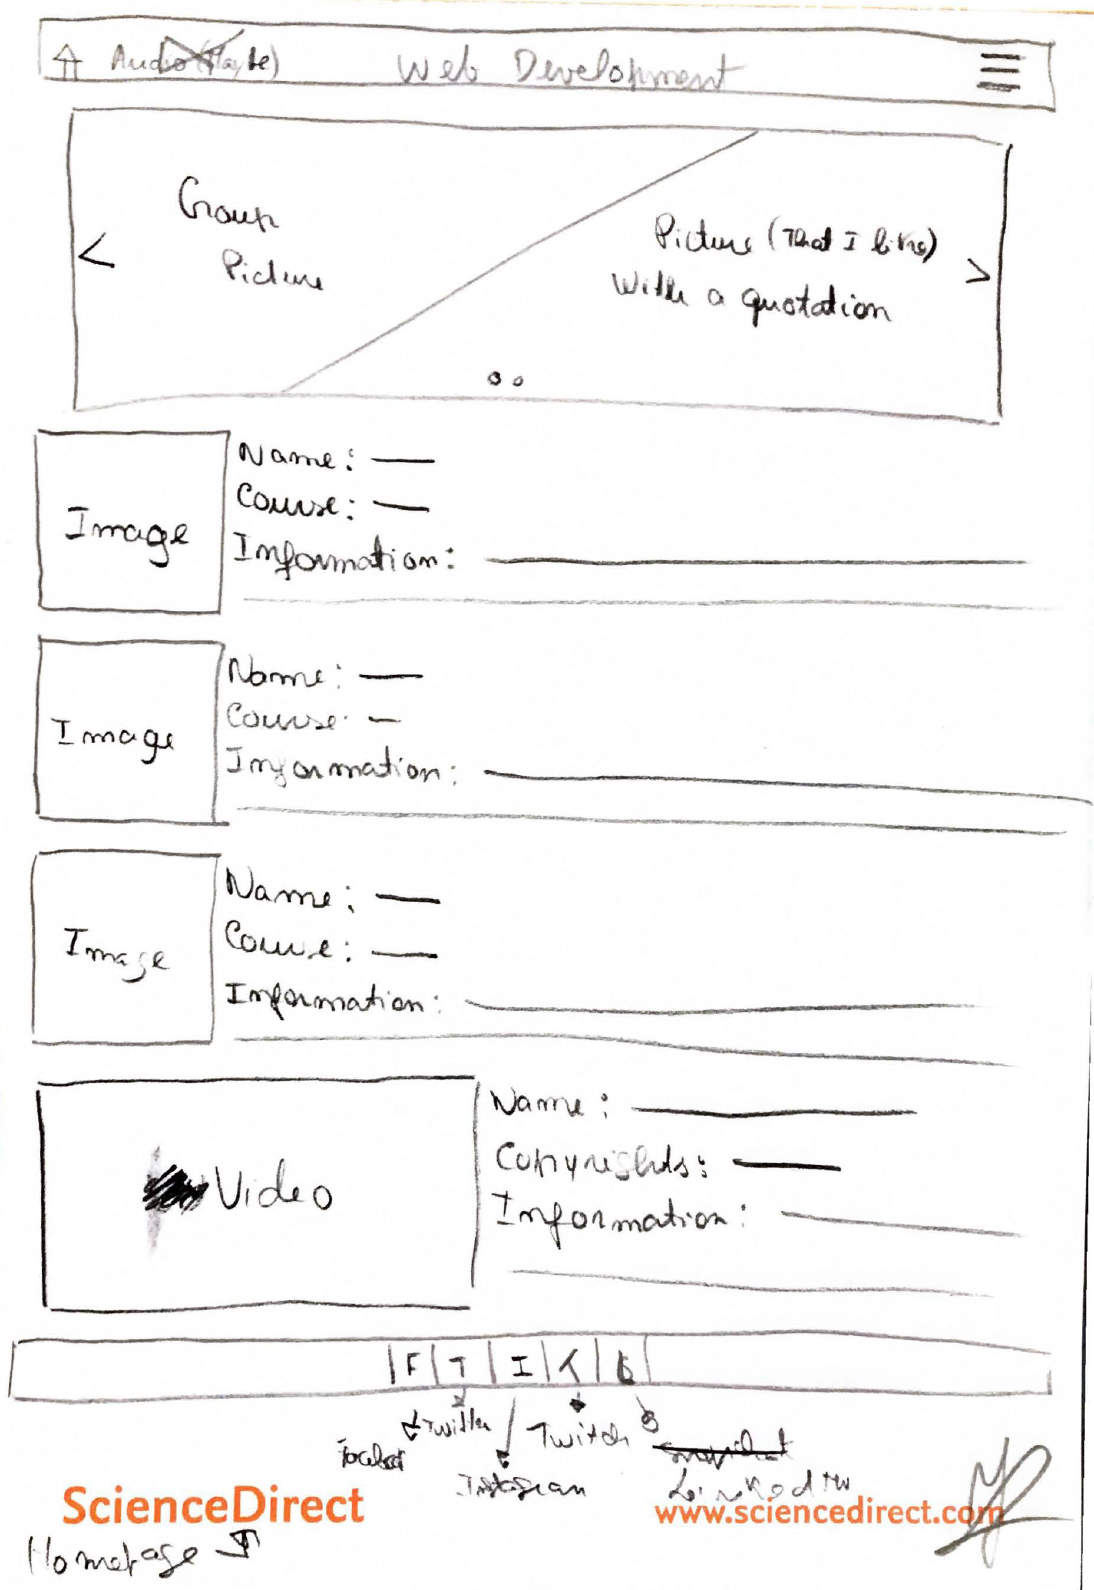 Audio (Maybe) Web Development
Group
Picture
Picture (That I like)
With a quotation
<
>
Image
Name:
Course:
Information:
Image
Name:
Course
Information:
Image
Name:
Course:
Information:
Video
Name:
Copyrights:
Information:
F T I T L
Facebook
Twitter
Instagram
Twitch
Snapchat
LinkedIn
ScienceDirect
www.sciencedirect.com
Homepage